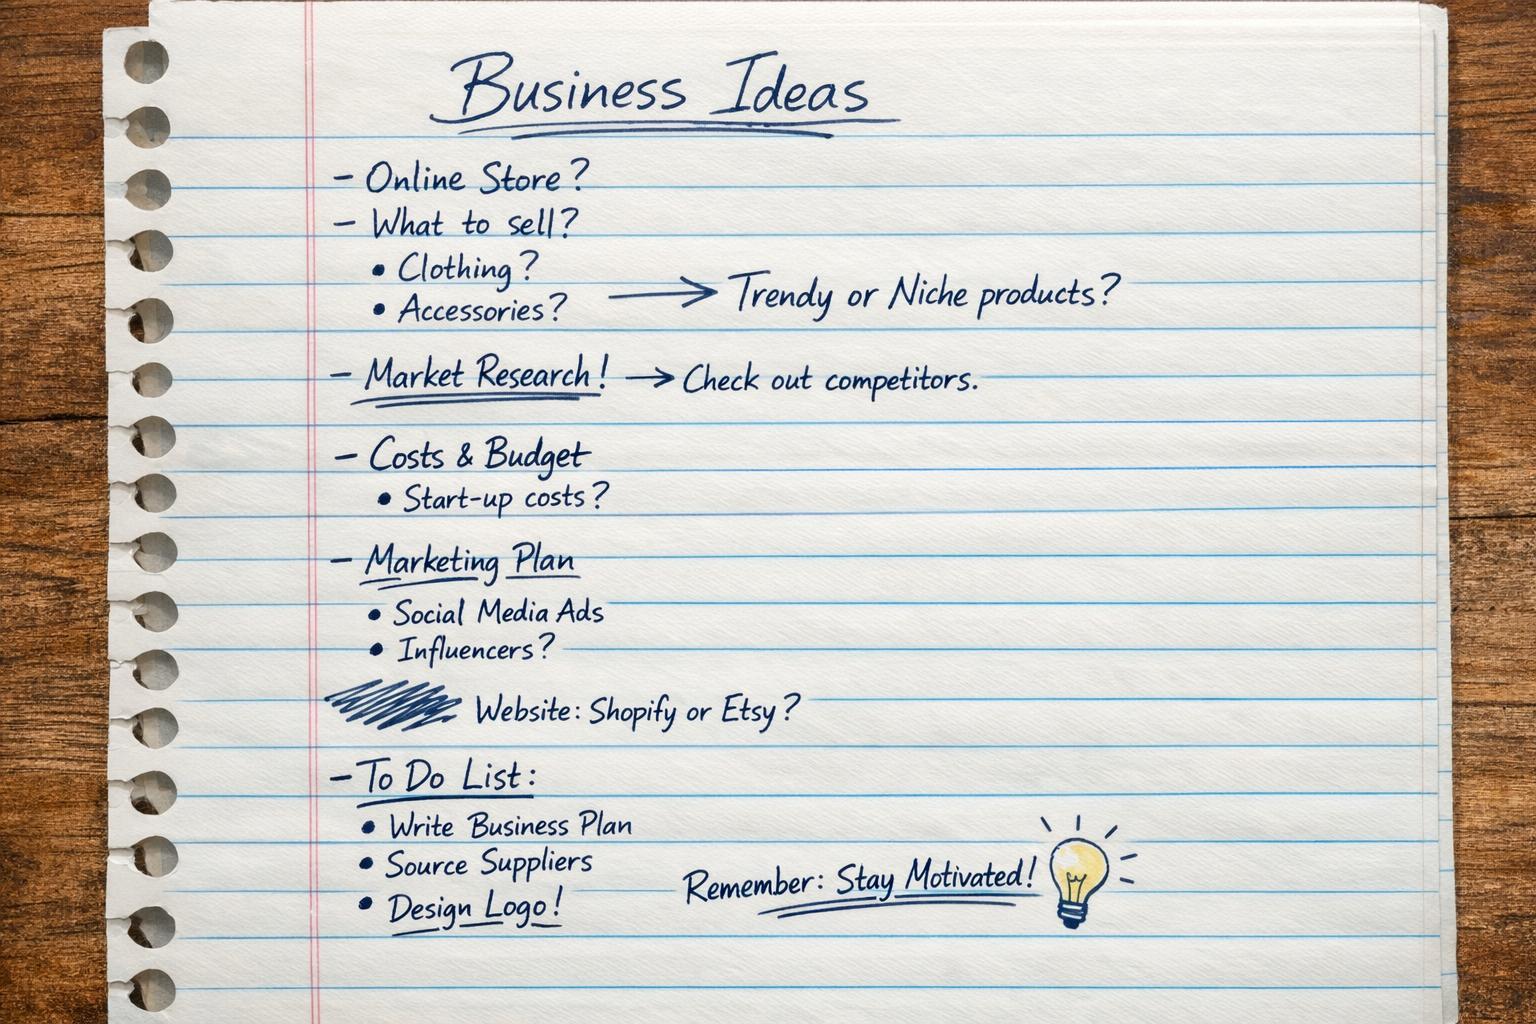 Business Ideas
- Online Store?
- What to sell?
• Clothing?
• Accessories? → Trendy or Niche products?
- Market Research! → Check out competitors.
- Costs & Budget
• Start-up costs?
- Marketing Plan
• Social Media Ads
• Influencers?
Website: Shopify or Etsy?
- To Do List:
• Write Business Plan
• Source Suppliers
• Design Logo!
Remember: Stay Motivated!